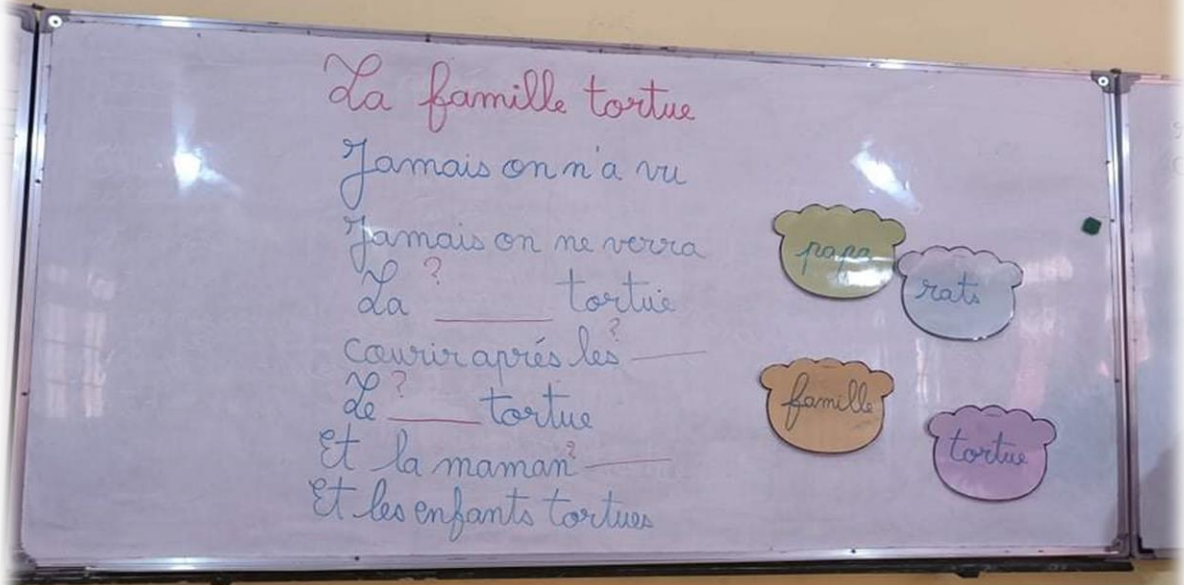 La famille tortue
Jamais on n'a vu
Jamais on ne verra
La ? ______ tortue
courir aprés les ? ____
Le ? ______ tortue
Et la maman ? ____
Et les enfants tortues
papa
rats
famille
tortue